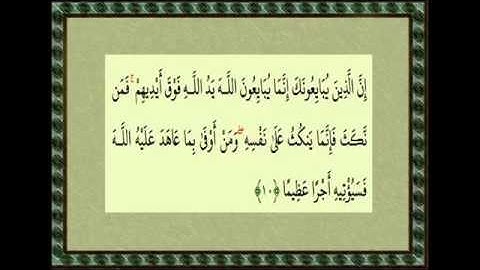 إِنَّ الَّذِينَ يُبَايِعُونَكَ إِنَّمَا يُبَايِعُونَ اللَّهَ يَدُ اللَّهِ فَوْقَ أَيْدِيهِمْ ۚ فَمَن
نَّكَثَ فَإِنَّمَا يَنكُثُ عَلَىٰ نَفْسِهِ ۖ وَمَنْ أَوْفَىٰ بِمَا عَاهَدَ عَلَيْهُ اللَّهَ
فَسَيُؤْتِيهِ أَجْرًا عَظِيمًا ﴿١٠﴾